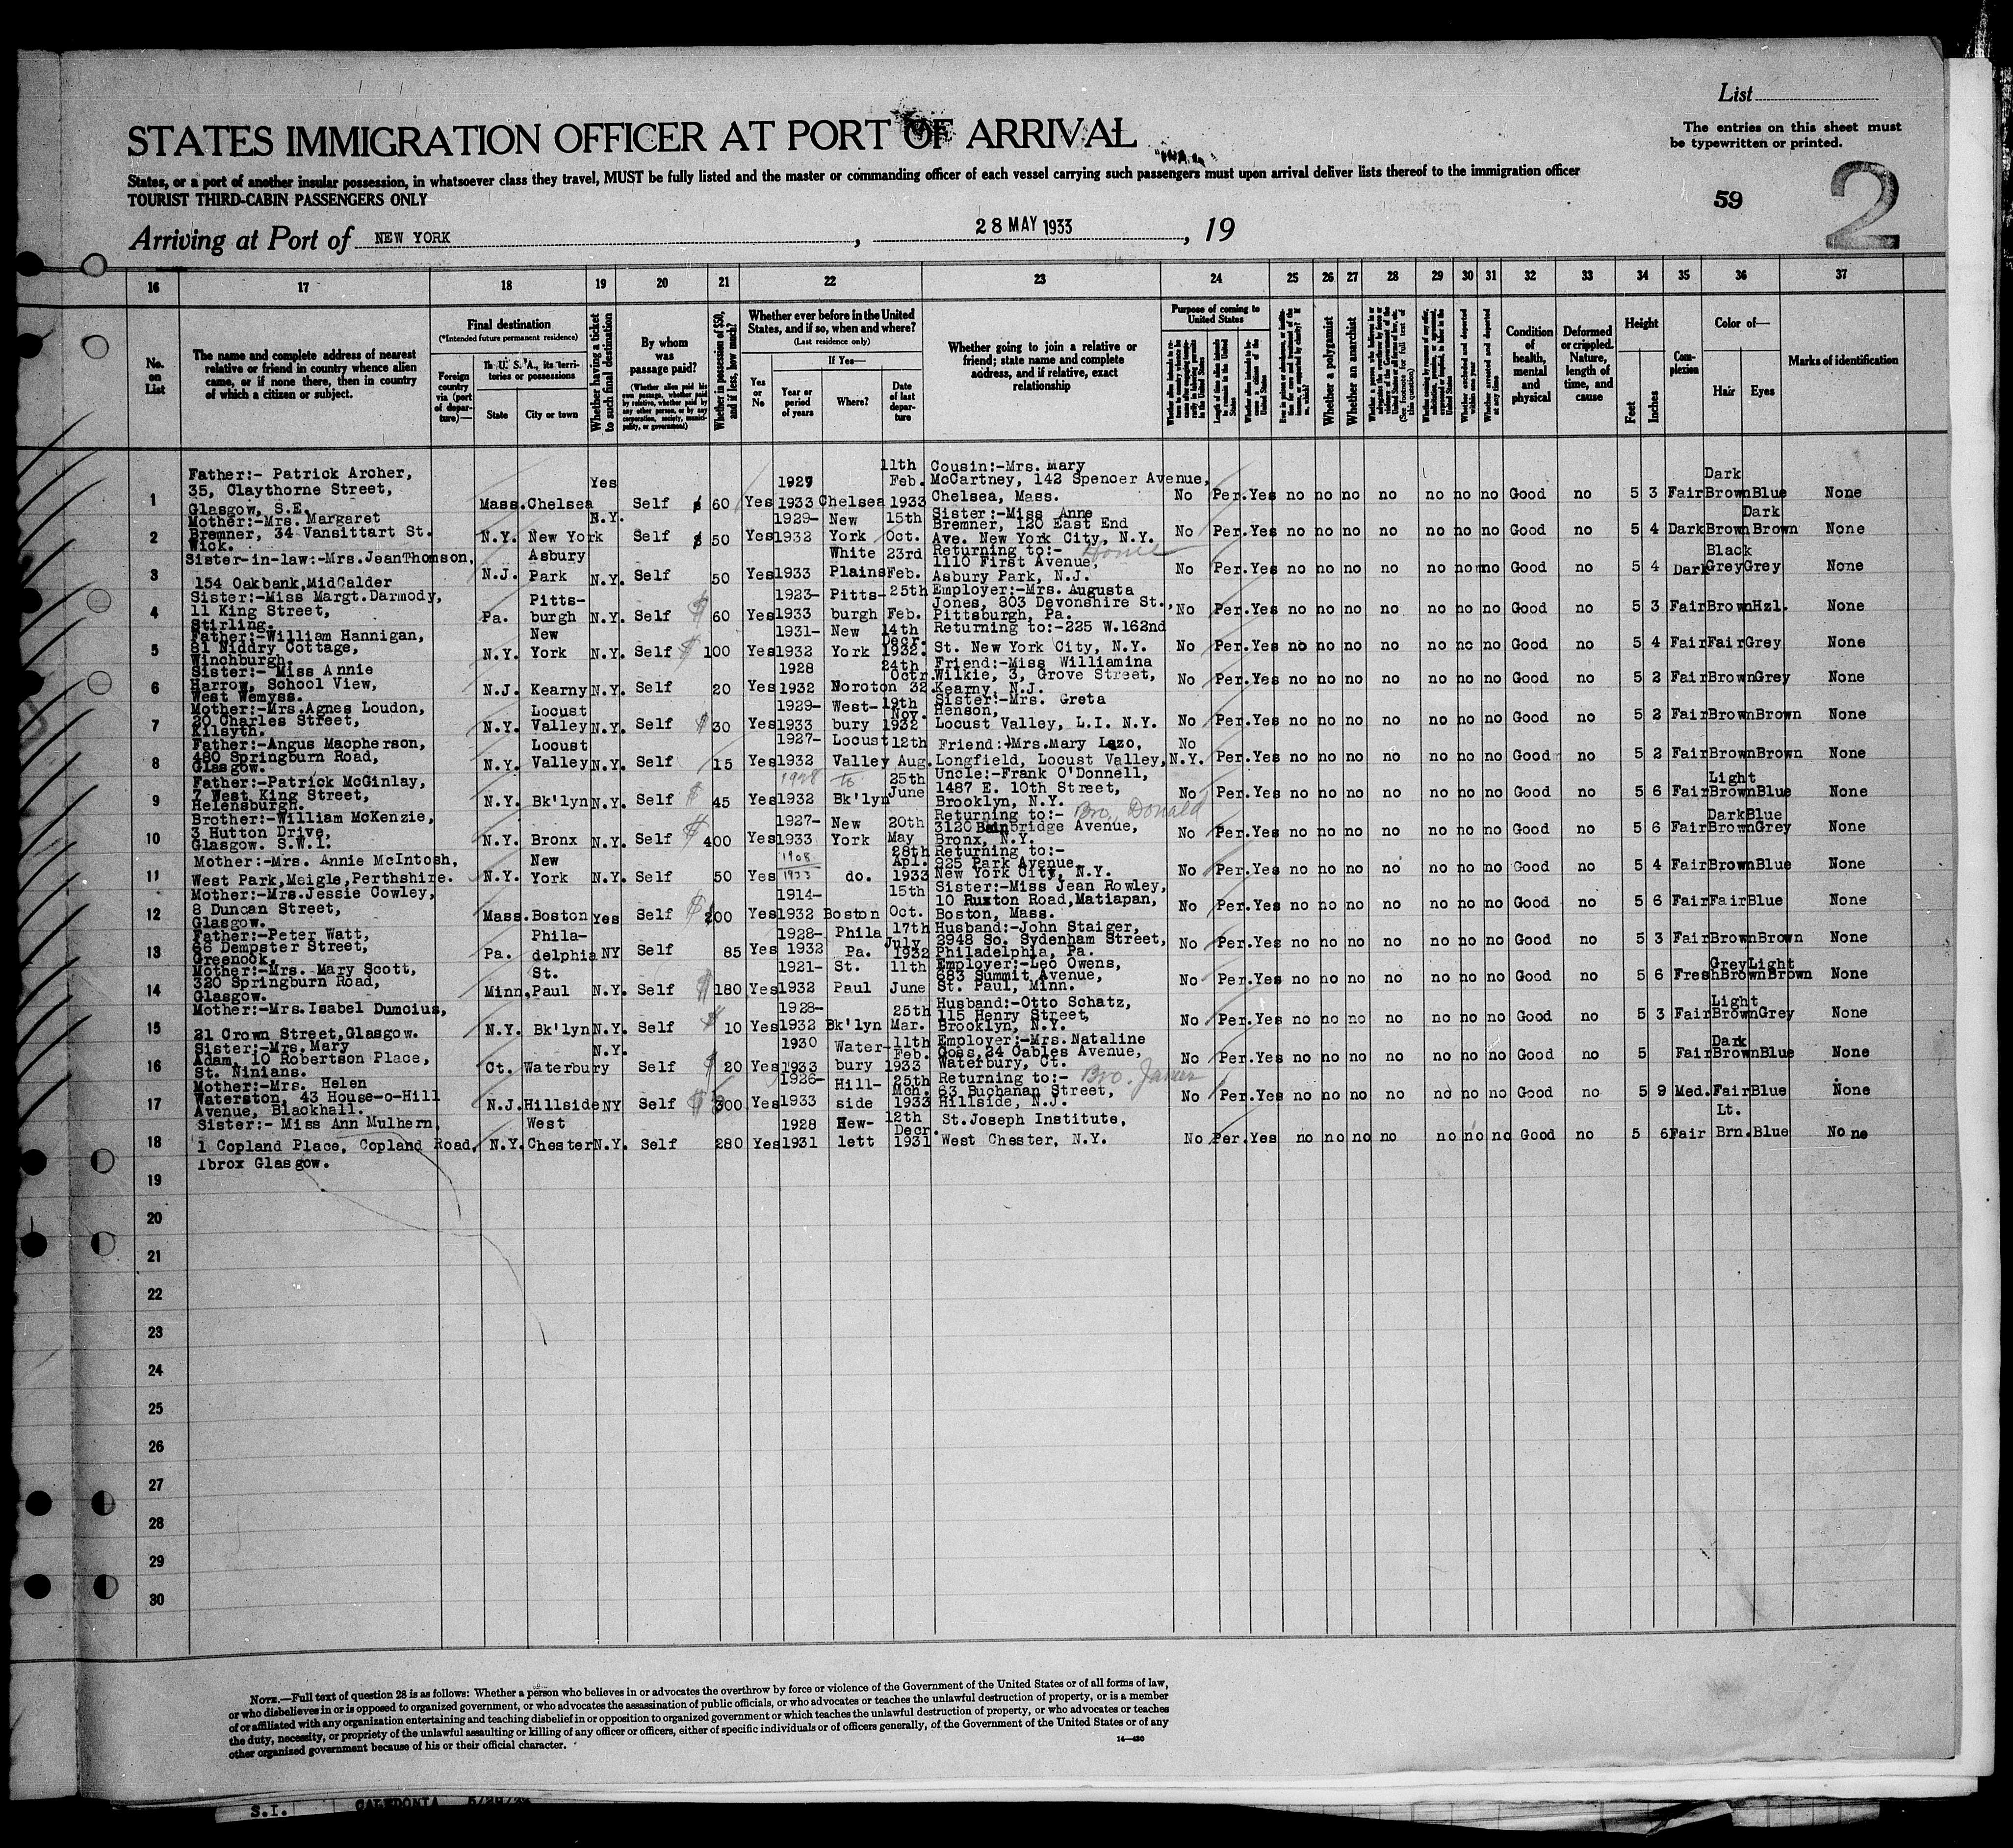 List
STATES IMMIGRATION OFFICER AT PORT OF ARRIVAL
The entries on this sheet must
be typewritten or printed.
States, or a port of another insular possession, in whatsoever class they travel, MUST be fully listed and the master or commanding officer of each vessel carrying such passengers must upon arrival deliver lists thereof to the immigration officer
TOURIST THIRD-CABIN PASSENGERS ONLY
59
2
Arriving at Port of NEW YORK, 28 MAY 1933, 19
16 17 18 19 20 21 22 23 24 25 26 27 28 29 30 31 32 33 34 35 36 37
No. on List
The name and complete address of nearest relative or friend in country whence alien came, or if none there, then in country of which a citizen or subject.
Final destination
(*Intended future permanent residence)
Foreign country via (port of departure)—
In U. S. A., its territories or possessions
State
City or town
Whether having a ticket to such final destination
By whom was passage paid?
(Whether alien paid his own passage, whether paid by relative, whether paid by any other person, or by any corporation, society, municipality, or government)
Whether in possession of $50, and if less, how much?
Whether ever before in the United States, and if so, when and where?
(Last residence only)
Yes or No
If Yes—
Year or period of years
Where?
Date of last departure
Whether going to join a relative or friend; state name and complete address, and if relative, exact relationship
Purpose of coming to United States
Length of time alien intends to remain in the United States
Whether a polygamist
Whether an anarchist
(See footnote for full text of this question)
Whether excluded and deported within one year
Whether arrested and deported at any time
Condition of health, mental and physical
Deformed or crippled. Nature, length of time, and cause
Height
Feet
Inches
Complexion
Color of—
Hair
Eyes
Marks of identification
1 Father:- Patrick Archer, 35, Claythorne Street, Glasgow, S.E. Mass. Chelsea Yes Self $ 60 Yes 1927 1933 Chelsea 11th Feb. 1933 Cousin:-Mrs. Mary McCartney, 142 Spencer Avenue, Chelsea, Mass. No Per. Yes no no no no no no no Good no 5 3 Fair Dark Brown Blue None
2 Mother:-Mrs. Margaret Bremner, 34 Vansittart St. Wick. N.Y. New York N.Y. Self $ 50 Yes 1929-1932 New York 15th Oct. Sister:-Miss Anne Bremner, 120 East End Ave. New York City, N.Y. No Per. Yes no no no no no no no Good no 5 4 Dark Brown Dark Brown None
3 Sister-in-law:-Mrs.JeanThomson, 154 Oakbank,MidCalder N.J. Asbury Park N.Y. Self 50 Yes 1933 White Plains 23rd Feb. Returning to:- Home 1110 First Avenue, Asbury Park, N.J. No Per. Yes no no no no no no no Good no 5 4 Dark Black Grey Grey None
4 Sister:-Miss Margt.Darmody, 11 King Street, Stirling. Pa. Pitts-burgh N.Y. Self $ 60 Yes 1923-1933 Pitts-burgh 25th Feb. Employer:-Mrs. Augusta Jones, 803 Devonshire St., Pittsburgh, Pa. No Per. Yes no no no no no no no Good no 5 3 Fair Brown Hzl. None
5 Father:-William Hannigan, 81 Niddry Cottage, Winchburgh. N.Y. New York N.Y. Self $ 100 Yes 1931-1932 New York 14th Decr. 1932. Returning to:-225 W.162nd St. New York City, N.Y. No Per. Yes no no no no no no no Good no 5 4 Fair Fair Grey None
6 Sister:- Miss Annie Harrow, School View, West Wemyss. N.J. Kearny N.Y. Self 20 Yes 1928 1932 Noroton 24th Octr. 32 Friend:-Miss Williamina Wilkie, 3, Grove Street, Kearny, N.J. No Per. Yes no no no no no no no Good no 5 2 Fair Brown Grey None
7 Mother:-Mrs.Agnes Loudon, 20 Charles Street, Kilsyth. N.Y. Locust Valley N.Y. Self $ 30 Yes 1929-1933 West-bury 19th Nov. 1932 Sister:-Mrs. Greta Henson, Locust Valley, L.I. N.Y. No Per. Yes no no no no no no no Good no 5 2 Fair Brown Brown None
8 Father:-Angus Macpherson, 480 Springburn Road, Glasgow. N.Y. Locust Valley N.Y. Self 15 Yes 1927-1932 Locust Valley 12th Aug. Friend:-Mrs.Mary Lazo, Longfield, Locust Valley, N.Y. No Per. Yes no no no no no no no Good no 5 2 Fair Brown Brown None
9 Father:-Patrick McGinlay, 7 West King Street, Helensburgh. N.Y. Bk'lyn N.Y. Self $ 45 Yes 1928 to 1932 Bk'lyn 25th June Uncle:-Frank O'Donnell, 1487 E. 10th Street, Brooklyn, N.Y. No Per. Yes no no no no no no no Good no 5 6 Fair Light Brown Blue None
10 Brother:-William McKenzie, 3 Hutton Drive, Glasgow. S.W.1. N.Y. Bronx N.Y. Self $ 400 Yes 1927-1933 New York 20th May Returning to:- Bro. Donald 3120 Bainbridge Avenue, Bronx, N.Y. No Per. Yes no no no no no no no Good no 5 6 Fair Dark Brown Blue Grey None
11 Mother:-Mrs. Annie McIntosh, West Park,Meigle,Perthshire. N.Y. New York N.Y. Self 50 Yes 1908 1933 do. 28th Apl. 1933 Returning to:- 925 Park Avenue, New York City, N.Y. No Per. Yes no no no no no no no Good no 5 4 Fair Brown Blue None
12 Mother:-Mrs.Jessie Cowley, 8 Duncan Street, Glasgow. Mass. Boston Yes Self $ 200 Yes 1914-1932 Boston 15th Oct. Sister:-Miss Jean Rowley, 10 Ruxton Road,Matiapan, Boston, Mass. No Per. Yes no no no no no no no Good no 5 6 Fair Fair Blue None
13 Father:-Peter Watt, 66 Dempster Street, Greenock. Pa. Phila-delphia NY Self 85 Yes 1928-1932 Phila Pa. 17th July 1932 Husband:-John Staiger, 2948 So. Sydenham Street, Philadelphia, Pa. No Per. Yes no no no no no no no Good no 5 3 Fair Brown Brown None
14 Mother:-Mrs. Mary Scott, 320 Springburn Road, Glasgow. Minn. St. Paul N.Y. Self $ 180 Yes 1921-1932 St. Paul 11th June Employer:-Leo Owens, 683 Summit Avenue, St. Paul, Minn. No Per. Yes no no no no no no no Good no 5 6 Fresh Grey Brown Light Brown None
15 Mother:-Mrs.Isabel Dumcius, 21 Crown Street,Glasgow. N.Y. Bk'lyn N.Y. Self $ 10 Yes 1928-1932 Bk'lyn 25th Mar. Husband:-Otto Schatz, 115 Henry Street, Brooklyn, N.Y. No Per. Yes no no no no no no no Good no 5 3 Fair Light Brown Grey None
16 Sister:-Mrs. Mary Adam, 10 Robertson Place, St. Ninians. Ct. Waterbury N.Y. Self $ 20 Yes 1930 1933 Water-bury 11th Feb. 1933 Employer:-Mrs.Nataline Goss,24 Gables Avenue, Waterbury, Ct. No Per. Yes no no no no no no no Good no 5 Fair Dark Brown Blue None
17 Mother:-Mrs. Helen Waterston, 43 House-o-Hill Avenue, Blackhall. N.J. Hillside NY Self $ 300 Yes 1926-1933 Hill-side 25th Mch. 1933 Returning to:- Bro. James 63 Buchanan Street, Hillside, N.J. No Per. Yes no no no no no no no Good no 5 9 Med. Fair Blue None
18 Sister:- Miss Ann Mulhern, 1 Copland Place, Copland Road, Ibrox Glasgow. N.Y. West Chester N.Y. Self 280 Yes 1928 1931 Hew-lett 12th Decr. 1931 St.Joseph Institute, West Chester, N.Y. No Per. Yes no no no no no no no Good no 5 6 Fair Lt. Brn. Blue None
19
20
21
22
23
24
25
26
27
28
29
30
NOTE.—Full text of question 28 is as follows: Whether a person who believes in or advocates the overthrow by force or violence of the Government of the United States or of all forms of law,
or who disbelieves in or is opposed to organized government, or who advocates the assassination of public officials, or who advocates or teaches the unlawful destruction of property, or is a member
of or affiliated with any organization entertaining and teaching disbelief in or opposition to organized government or which teaches the unlawful destruction of property, or who advocates or teaches
the duty, necessity, or propriety of the unlawful assaulting or killing of any officer or officers, either of specific individuals or of officers generally, of the Government of the United States or of any
other organized government because of his or their official character.
14—430
S.I. CALEDONIA